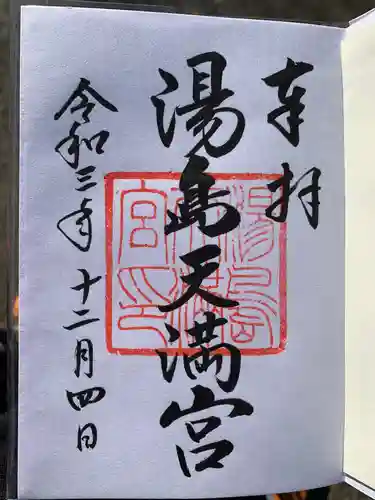 奉拝
湯島天満宮
湯島天満宮印
令和三年十二月四日